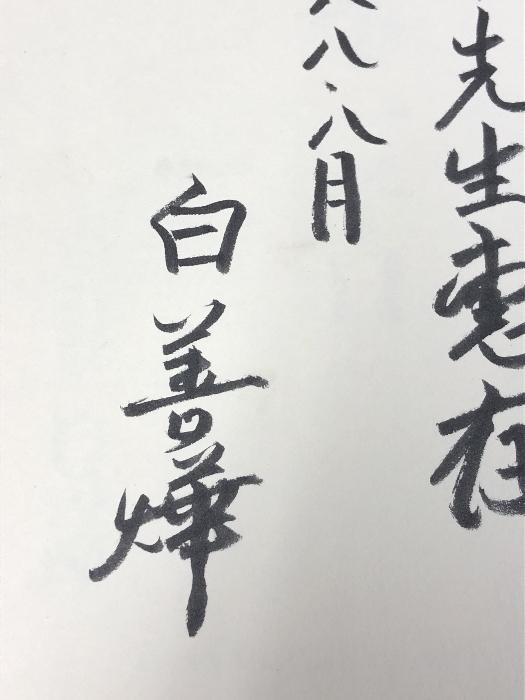 先生惠存
八八·八月
白善燁